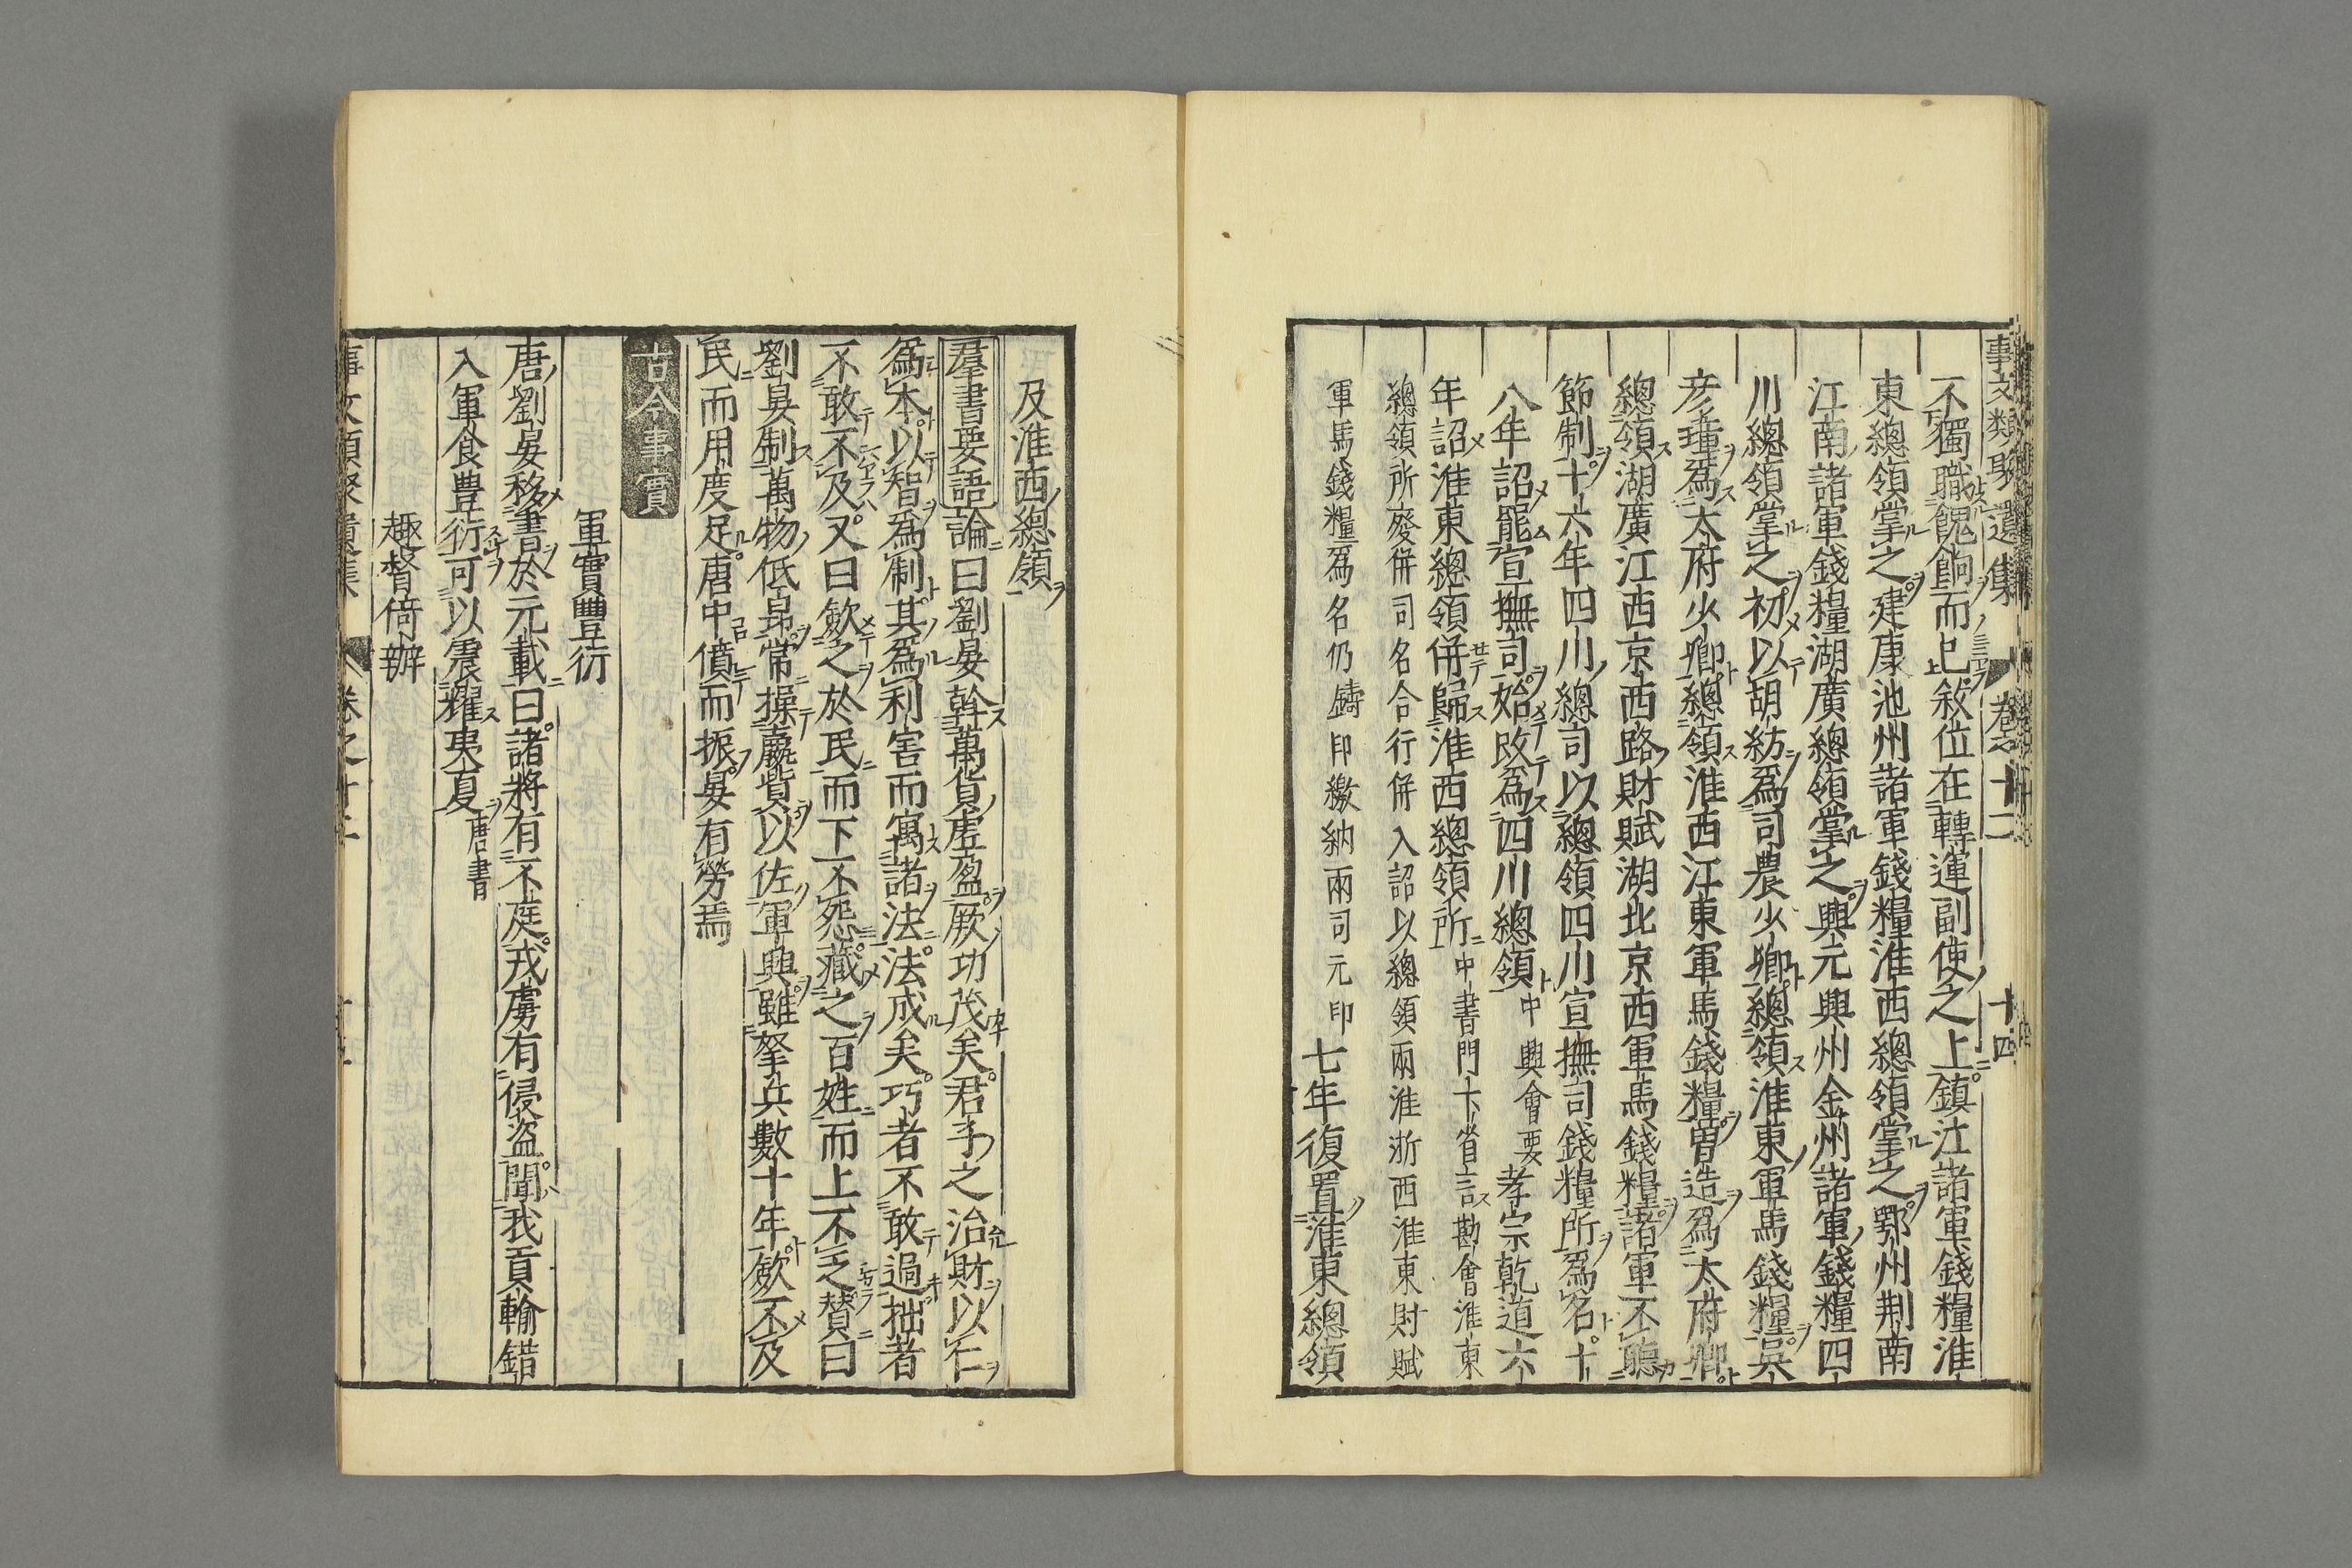 事文類聚遺集 卷之十二 十四
不獨職餽餉而已敘位在轉運副使之上鎮江諸軍錢糧淮
東總領掌之建康池州諸軍錢糧淮西總領掌之鄂州荆南
江南諸軍錢糧湖廣總領掌之興元興州金州諸軍錢糧四
川總領掌之初以胡紡爲司農少卿總領淮東軍馬錢糧吳
彦璋爲太府少卿總領淮西江東軍馬錢糧曽造爲太府卿
總領湖廣江西京西路財賦湖北京西軍馬錢糧諸軍不聽
節制十六年四川總司以總領四川宣撫司錢糧所爲名十
八年詔罷宣撫司始改爲四川總領中興會要孝宗乾道六
年詔淮東總領併歸淮西總領所中書門下省言勘會淮東
總領所廢併司名合行併入詔以總領兩淮浙西淮東財賦
軍馬錢糧爲名仍鑄印繳納兩司元印七年復置淮東總領
及淮西總領
羣書要語論曰劉晏斡萬貨虗盈厥功茂矣君子之治財以仁
爲本以智爲制其爲利害而寓諸法法成矣巧者不敢過拙者
不敢不及又曰斂之於民而下不怨藏之百姓而上不乏賛曰
劉晏制萬物低昻常操贏貲以佐軍興雖拏兵數十年斂不及
民而用度足唐中僨而振晏有勞焉
古今事實
軍實豐衍
唐劉晏移書於元載曰諸將有不庭戎虜有侵盜聞我貢輸錯
入軍食豊衍可以震耀夷夏唐書
趣督倚辦
事文類聚遺集 卷之十二